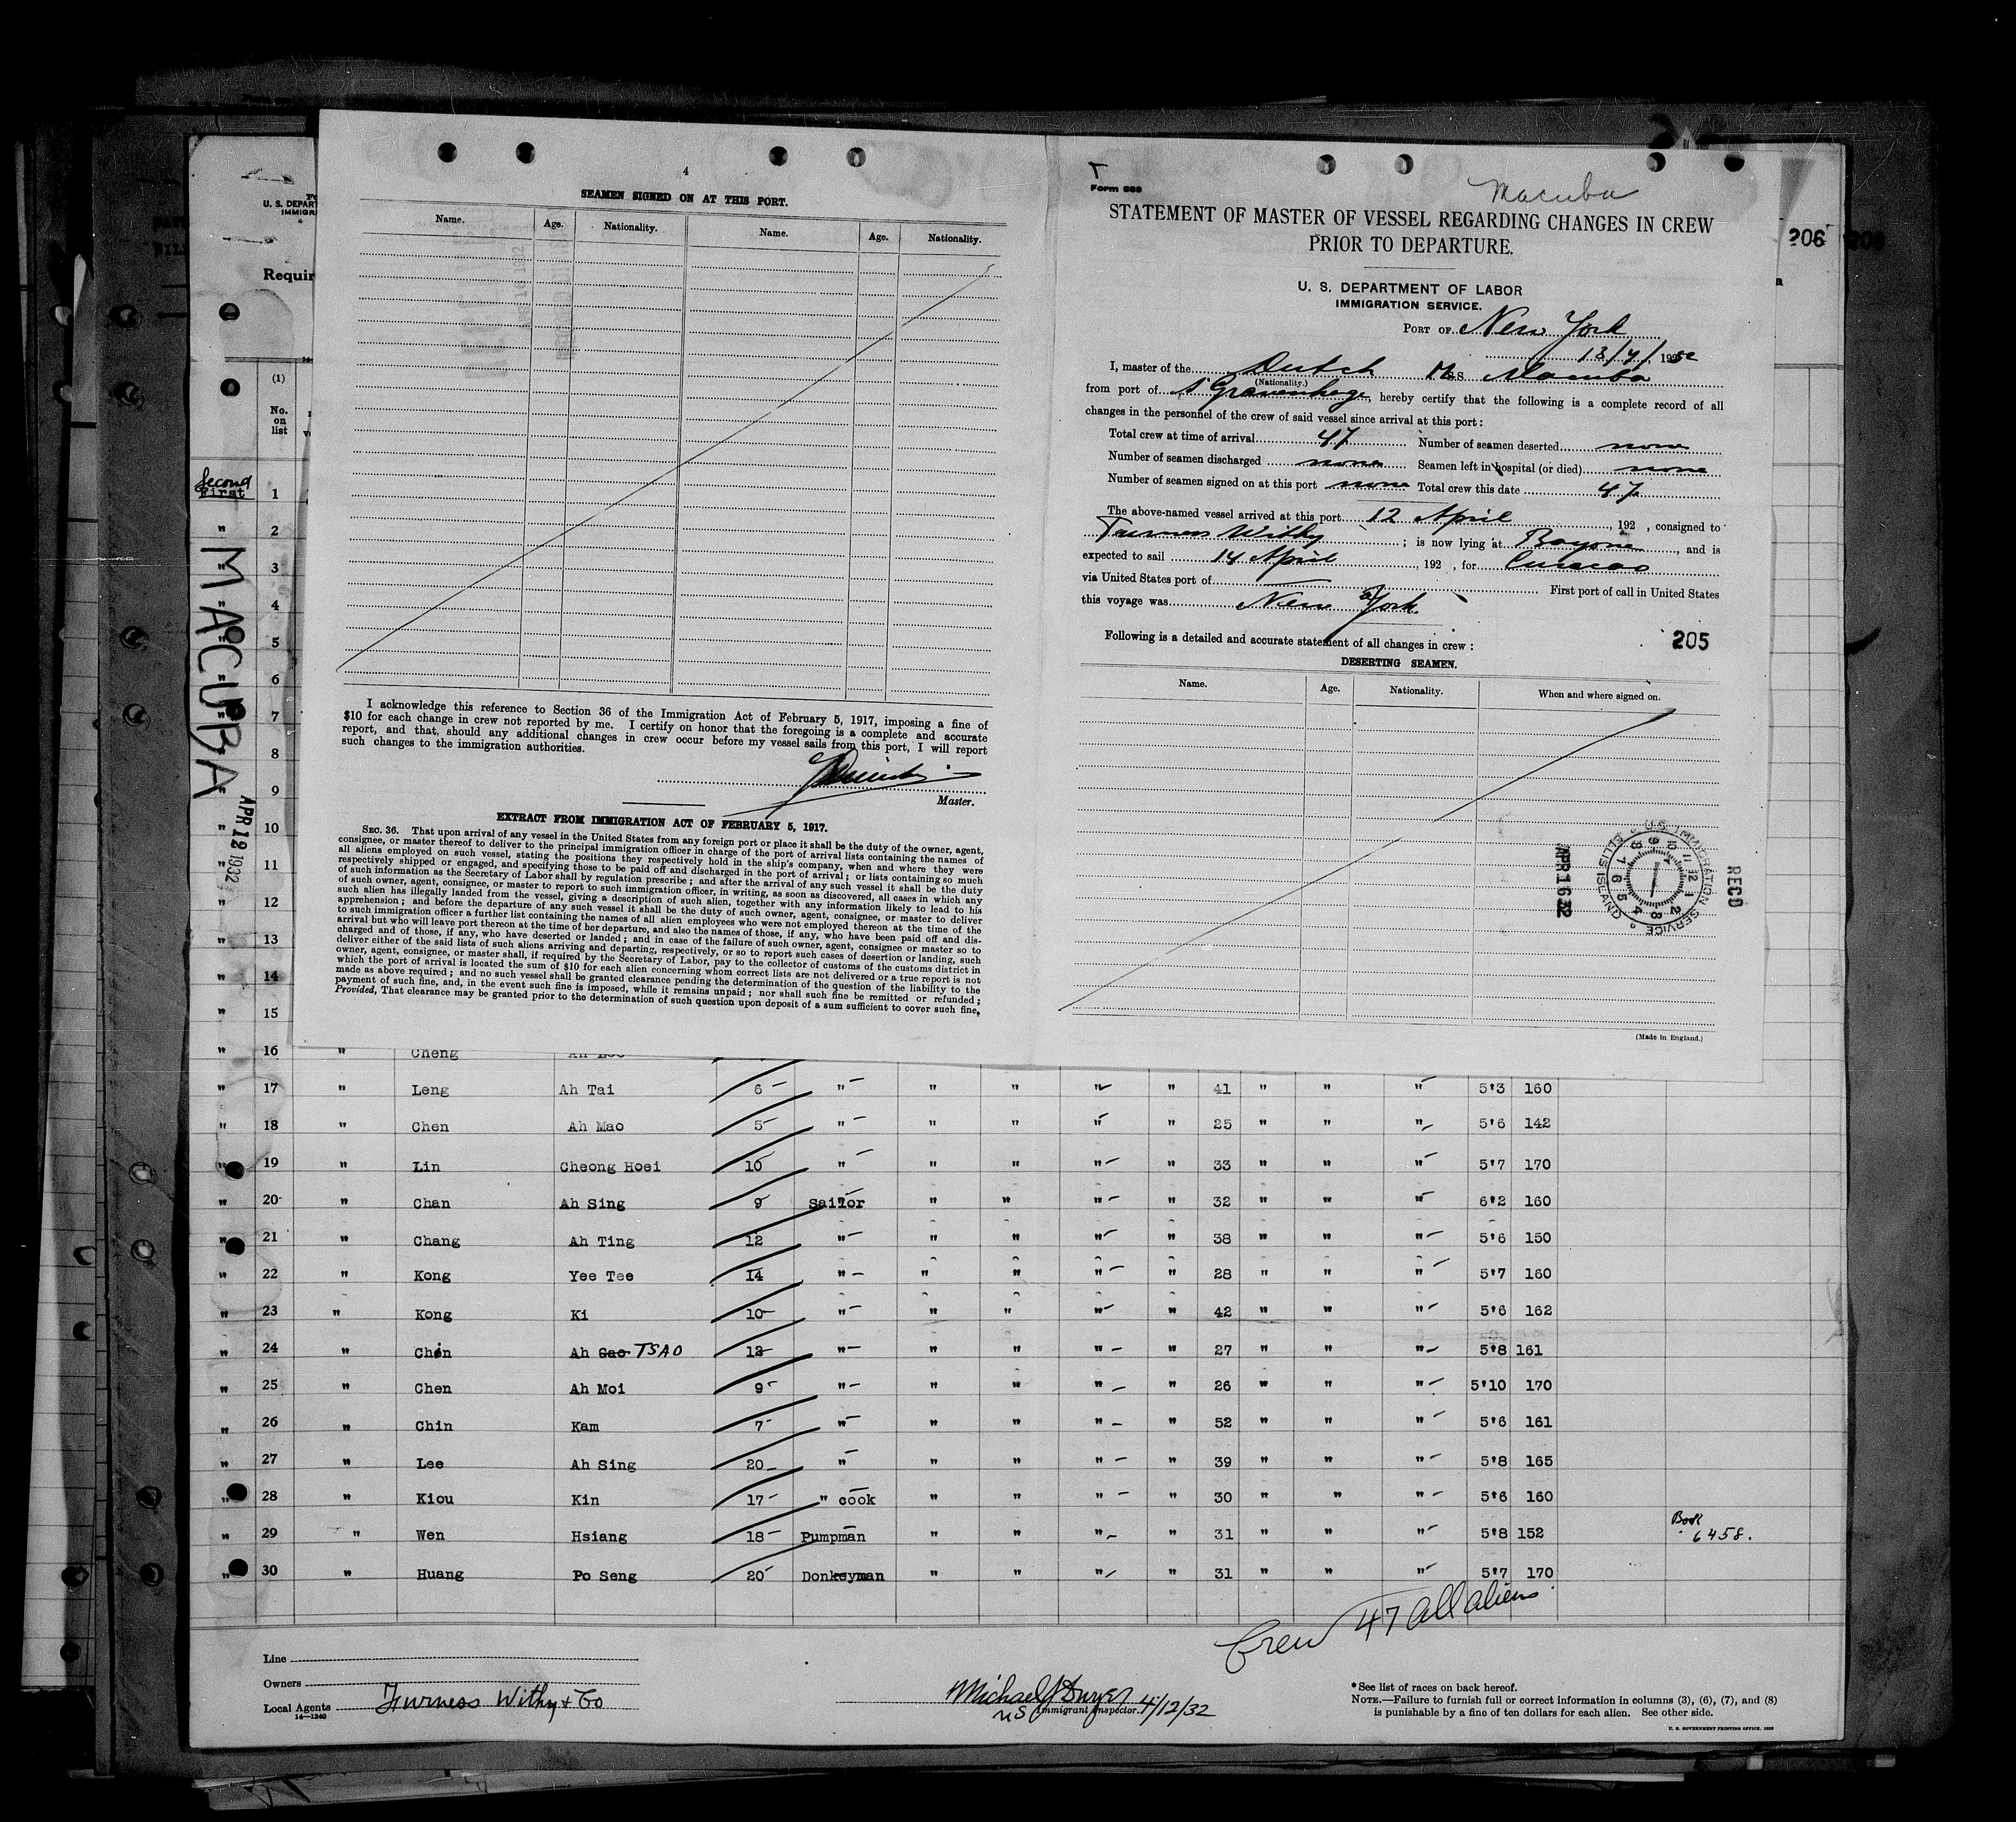 4
SEAMEN SIGNED ON AT THIS PORT.
Name. Age. Nationality. Name. Age. Nationality.
I acknowledge this reference to Section 36 of the Immigration Act of February 5, 1917, imposing a fine of
$10 for each change in crew not reported by me. I certify on honor that the foregoing is a complete and accurate
report, and that, should any additional changes in crew occur before my vessel sails from this port, I will report
such changes to the immigration authorities.
Master.
EXTRACT FROM IMMIGRATION ACT OF FEBRUARY 5, 1917.
SEC. 36. That upon arrival of any vessel in the United States from any foreign port or place it shall be the duty of the owner, agent,
consignee, or master thereof to deliver to the principal immigration officer in charge of the port of arrival lists containing the names of
all aliens employed on such vessel, stating the positions they respectively hold in the ship's company, when and where they were
respectively shipped or engaged, and specifying those to be paid off and discharged in the port of arrival; or lists containing so much
of such information as the Secretary of Labor shall by regulation prescribe; and after the arrival of any such vessel it shall be the duty
of such owner, agent, consignee, or master to report to such immigration officer, in writing, as soon as discovered, all cases in which any
such alien has illegally landed from the vessel, giving a description of such alien, together with any information likely to lead to his
apprehension; and before the departure of any such vessel it shall be the duty of such owner, agent, consignee, or master to deliver
to such immigration officer a further list containing the names of all alien employees who were not employed thereon at the time of the
arrival but who will leave port thereon at the time of her departure, and also the names of those, if any, who have been paid off and dis-
charged and of those, if any, who have deserted or landed; and in case of the failure of such owner, agent, consignee or master so to
deliver either of the said lists of such aliens arriving and departing, respectively, or so to report such cases of desertion or landing, such
owner, agent, consignee, or master shall, if required by the Secretary of Labor, pay to the collector of customs of the customs district in
which the port of arrival is located the sum of $10 for each alien concerning whom correct lists are not delivered or a true report is not
made as above required; and no such vessel shall be granted clearance pending the determination of the question of the liability to the
payment of such fine, and, in the event such fine is imposed, while it remains unpaid; nor shall such fine be remitted or refunded;
Provided, That clearance may be granted prior to the determination of such question upon deposit of a sum sufficient to cover such fine,
T
Form 689
Macuba
STATEMENT OF MASTER OF VESSEL REGARDING CHANGES IN CREW
PRIOR TO DEPARTURE.
U. S. DEPARTMENT OF LABOR
IMMIGRATION SERVICE.
PORT OF New York
13/4/1932
I, master of the Dutch MSS Macuba
(Nationality.)
from port of s'Gravenhage, hereby certify that the following is a complete record of all
changes in the personnel of the crew of said vessel since arrival at this port:
Total crew at time of arrival 47 Number of seamen deserted none
Number of seamen discharged none Seamen left in hospital (or died) none
Number of seamen signed on at this port none Total crew this date 47
The above-named vessel arrived at this port 12 April, 192 , consigned to
Furness Withy; is now lying at Bayone, and is
expected to sail 14 April, 192 , for Curacao
via United States port of First port of call in United States
this voyage was New York.
Following is a detailed and accurate statement of all changes in crew:
205
DESERTING SEAMEN.
Name. Age. Nationality. When and where signed on.
U.S. IMMIGRATION SERVICE ELLIS ISLAND
APR 16 32
REC'D
(Made in England.)
206
U. S. DEPAR
IMMIGRA
Requir
(1)
No. on list
Second
First 1
" 2
" 3
" 4
" 5
" 6
" 7
" 8
" 9
" 10
" 11
" 12
" 13
" 14
" 15
MACUBA
APR 12 1932
" 16 " Cheng
" 17 " Leng Ah Tai 6 " " " " " 41 " " " 5'3 160
" 18 " Chen Ah Mao 5 " " " " " 25 " " " 5'6 142
" 19 " Lin Cheong Hoei 10 " " " " " 33 " " " 5'7 170
" 20 " Chan Ah Sing 9 Sailor " " " " 32 " " " 6'2 160
" 21 " Chang Ah Ting 12 " " " " " 38 " " " 5'6 150
" 22 " Kong Yee Tee 14 " " " " " 28 " " " 5'7 160
" 23 " Kong Ki 10 " " " " " 42 " " " 5'6 162
" 24 " Chen Ah Gao TSAO 12 " " " " " 27 " " " 5'8 161
" 25 " Chen Ah Moi 9 " " " " " 26 " " " 5'10 170
" 26 " Chin Kam 7 " " " " " 52 " " " 5'6 161
" 27 " Lee Ah Sing 20 " " " " " 39 " " " 5'8 165
" 28 " Kiou Kin 17 " cook " " " " 30 " " " 5'6 160
" 29 " Wen Hsiang 18 Pumpman " " " " 31 " " " 5'8 152 Book 6458.
" 30 " Huang Po Seng 20 Donkeyman " " " " 31 " " " 5'7 170
Crew 47 all aliens
Line
Owners
Local Agents Furness Withy & Co
14—1240
Michael J Dwyer
US Immigrant Inspector. 4/12/32
* See list of races on back hereof.
NOTE.—Failure to furnish full or correct information in columns (3), (6), (7), and (8)
is punishable by a fine of ten dollars for each alien. See other side.
U. S. GOVERNMENT PRINTING OFFICE. 1929